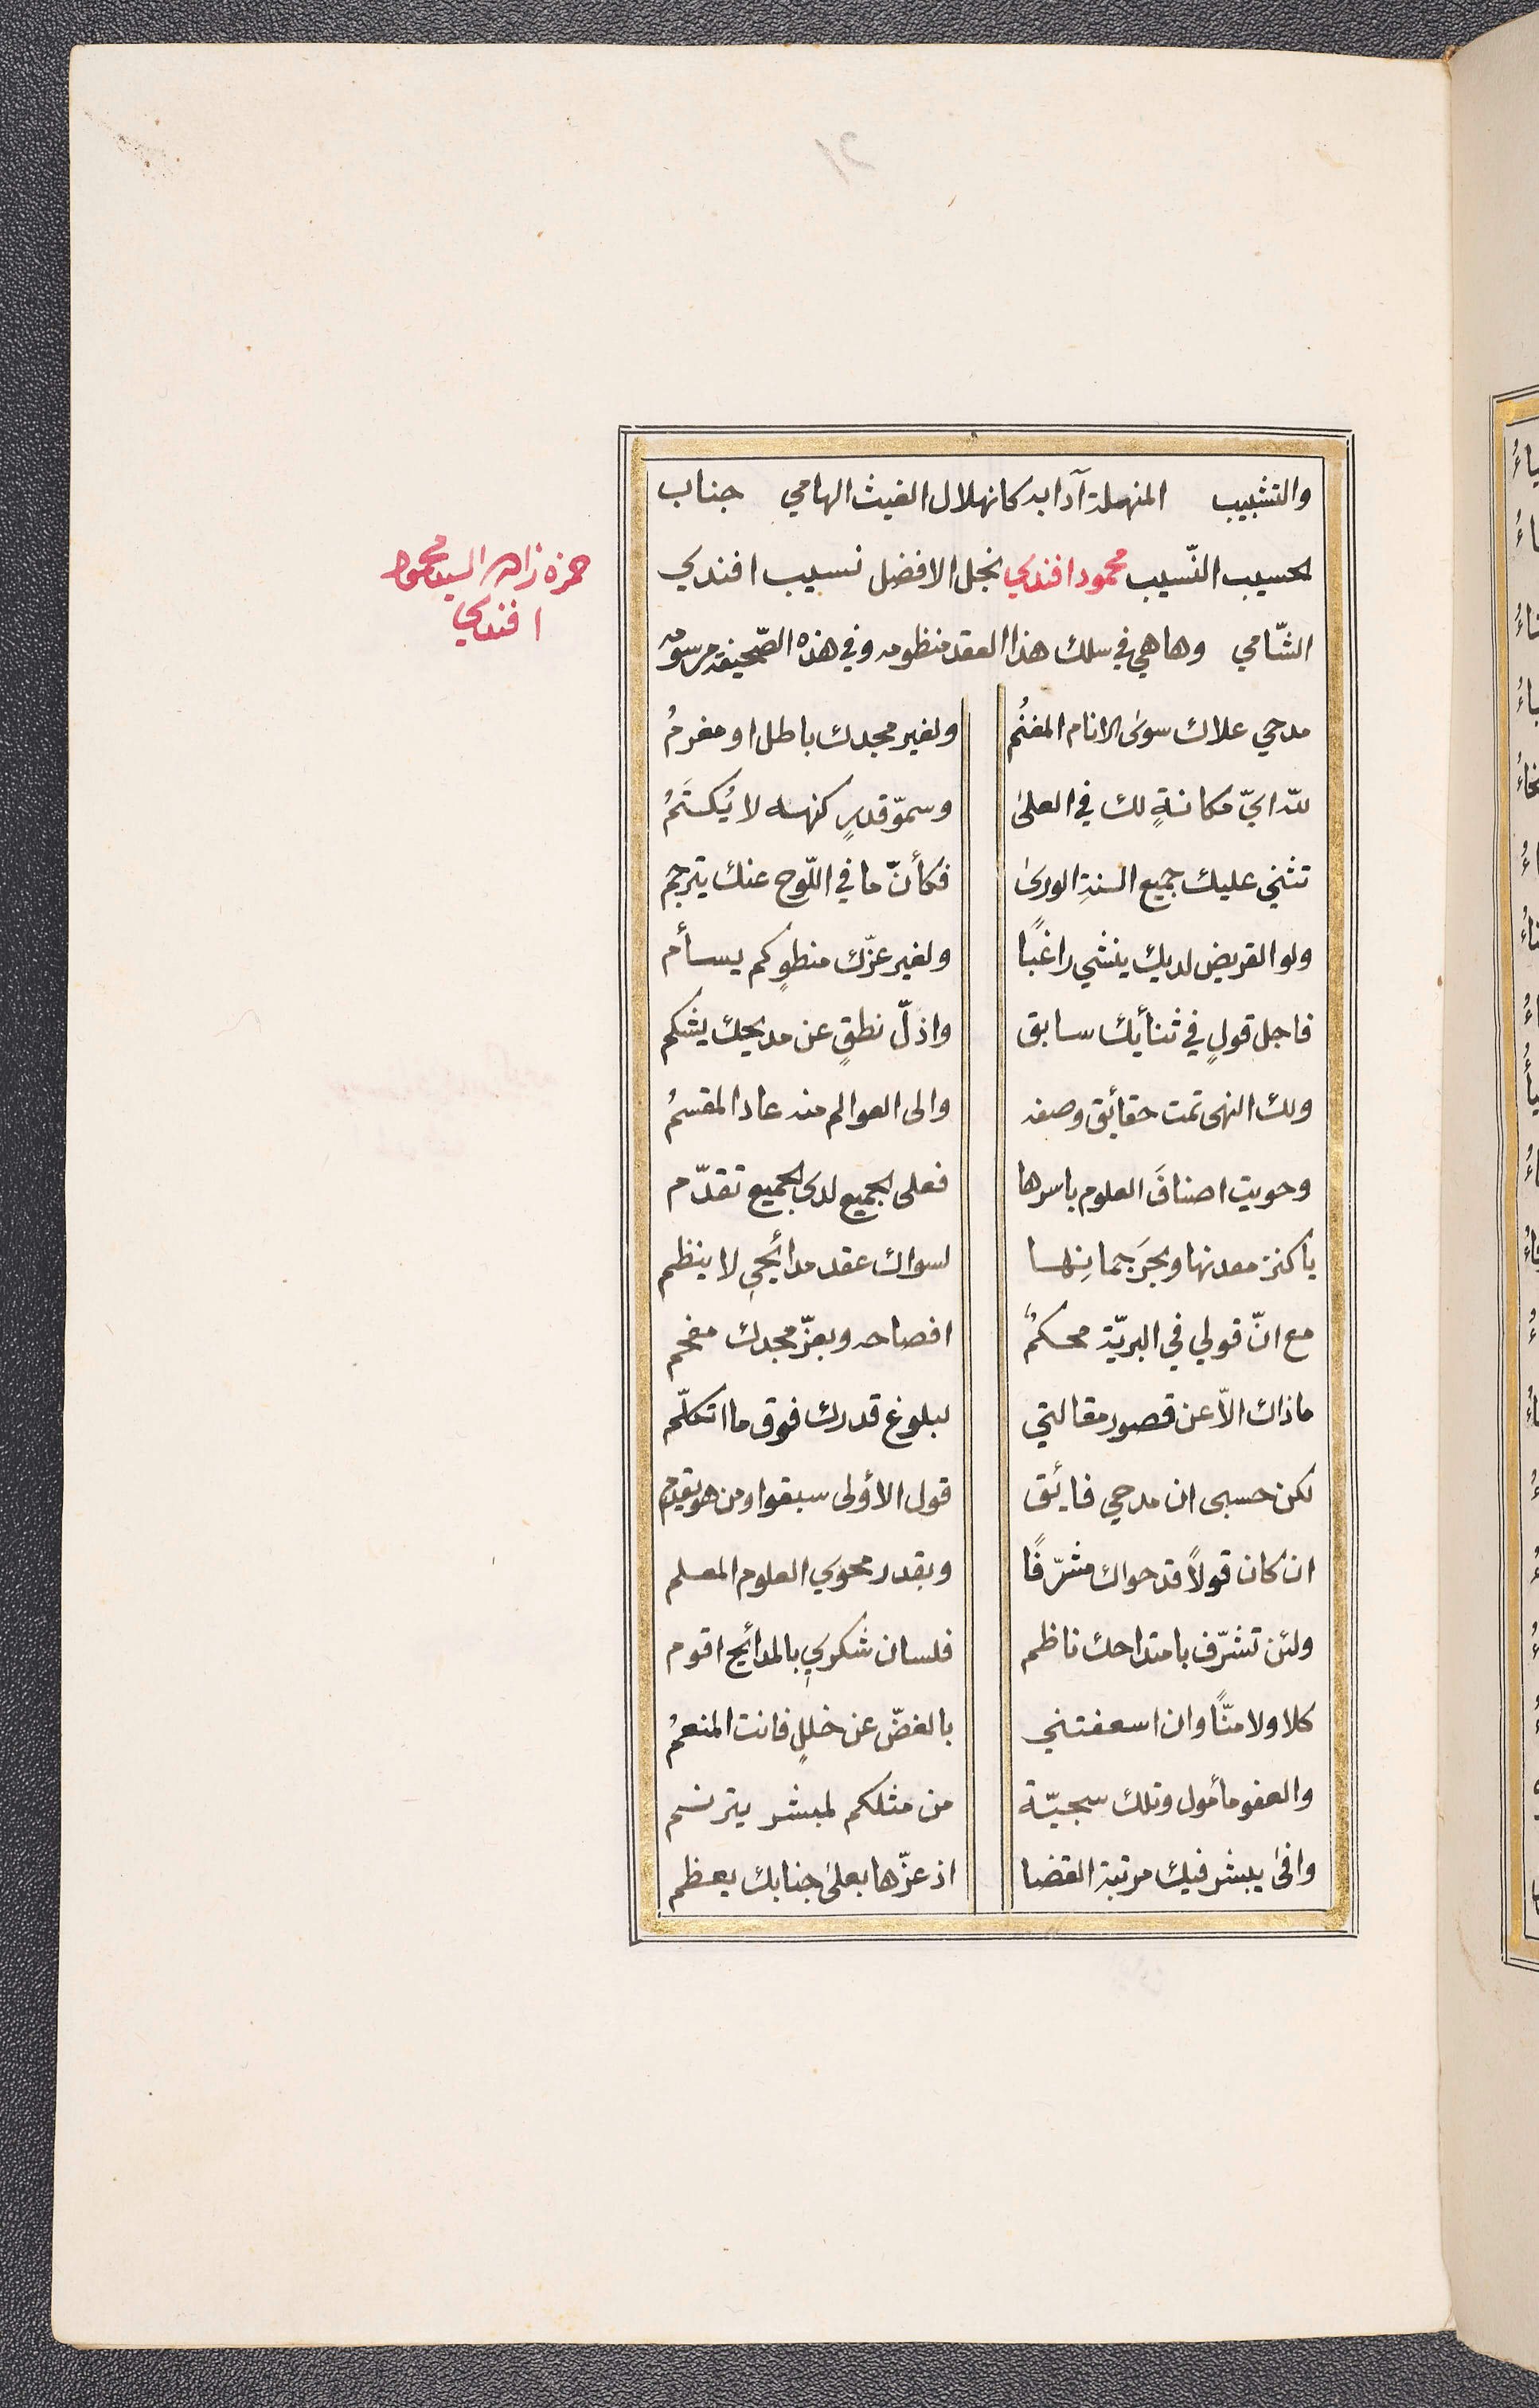 والتشبيب المنهملة آدابه كانهلال الغيث الهامي جناب
الحسيب النّسيب محمود افندي نجل الافضل نسيب افندي
الشّامي وهاهي في سلك هذا العقد منظومه وفي هذه الصّحيفة مرسومه
حمزه زاده السيد محمود
افندي
مدحي علاك سوى الانام المغنُم ولغير مجدك باطل او مغرمُ
لله ايّ مكانةٍ لك في العلىٰ وسموّ قدرٍ كنهه لا يُكتَمُ
تثني عليك جميع السنةِ الورىٰ فكأنّ ما في اللّوح عنك يترجم
ولو القريض لديك ينشي راغبًا ولغير عزّك منطوٍ كم يسأم
فاجل قولٍ في ثنأيك سابق واذلّ نطقٍ عن مديحك يشكم
ولك النهى تمت حقأيق وصفه والى العوالم منه عاد المقسمُ
وحويت اصنافَ العلوم باسرها فعلى الجميع لدى الجميع تقدّم
ياكنز معدنها وبحرَ جمانِها لسواك عقد مدائحي لا ينظم
مع انّ قولي في البريّة محكمٌ افصاحه وبعزّ مجدك مفحم
ماذاك الاّ عن قصور مقالتي لبلوغ قدرك فوق ما اتكلّم
لكن حسبى ان مدحي فائق قول الأولى سبقوا ومن هو يقدم
ان كان قولاً قد حواك مشرّفًا وبقدر محوي العلوم المعلم
ولئن تشرّف بامتداحك ناظم فلسان شكري بالمدائح اقوم
كلا ولا منّاً وان اسعفتني بالغضّ عن خللٍ فانت المنعمُ
والعفو مأمول وتلك سجيّة من مثلكم لمبشر يترنم
وافىٰ يبشر فيك مرتبة القضا اذ عزّها بعلىٰ جنابك يعظم